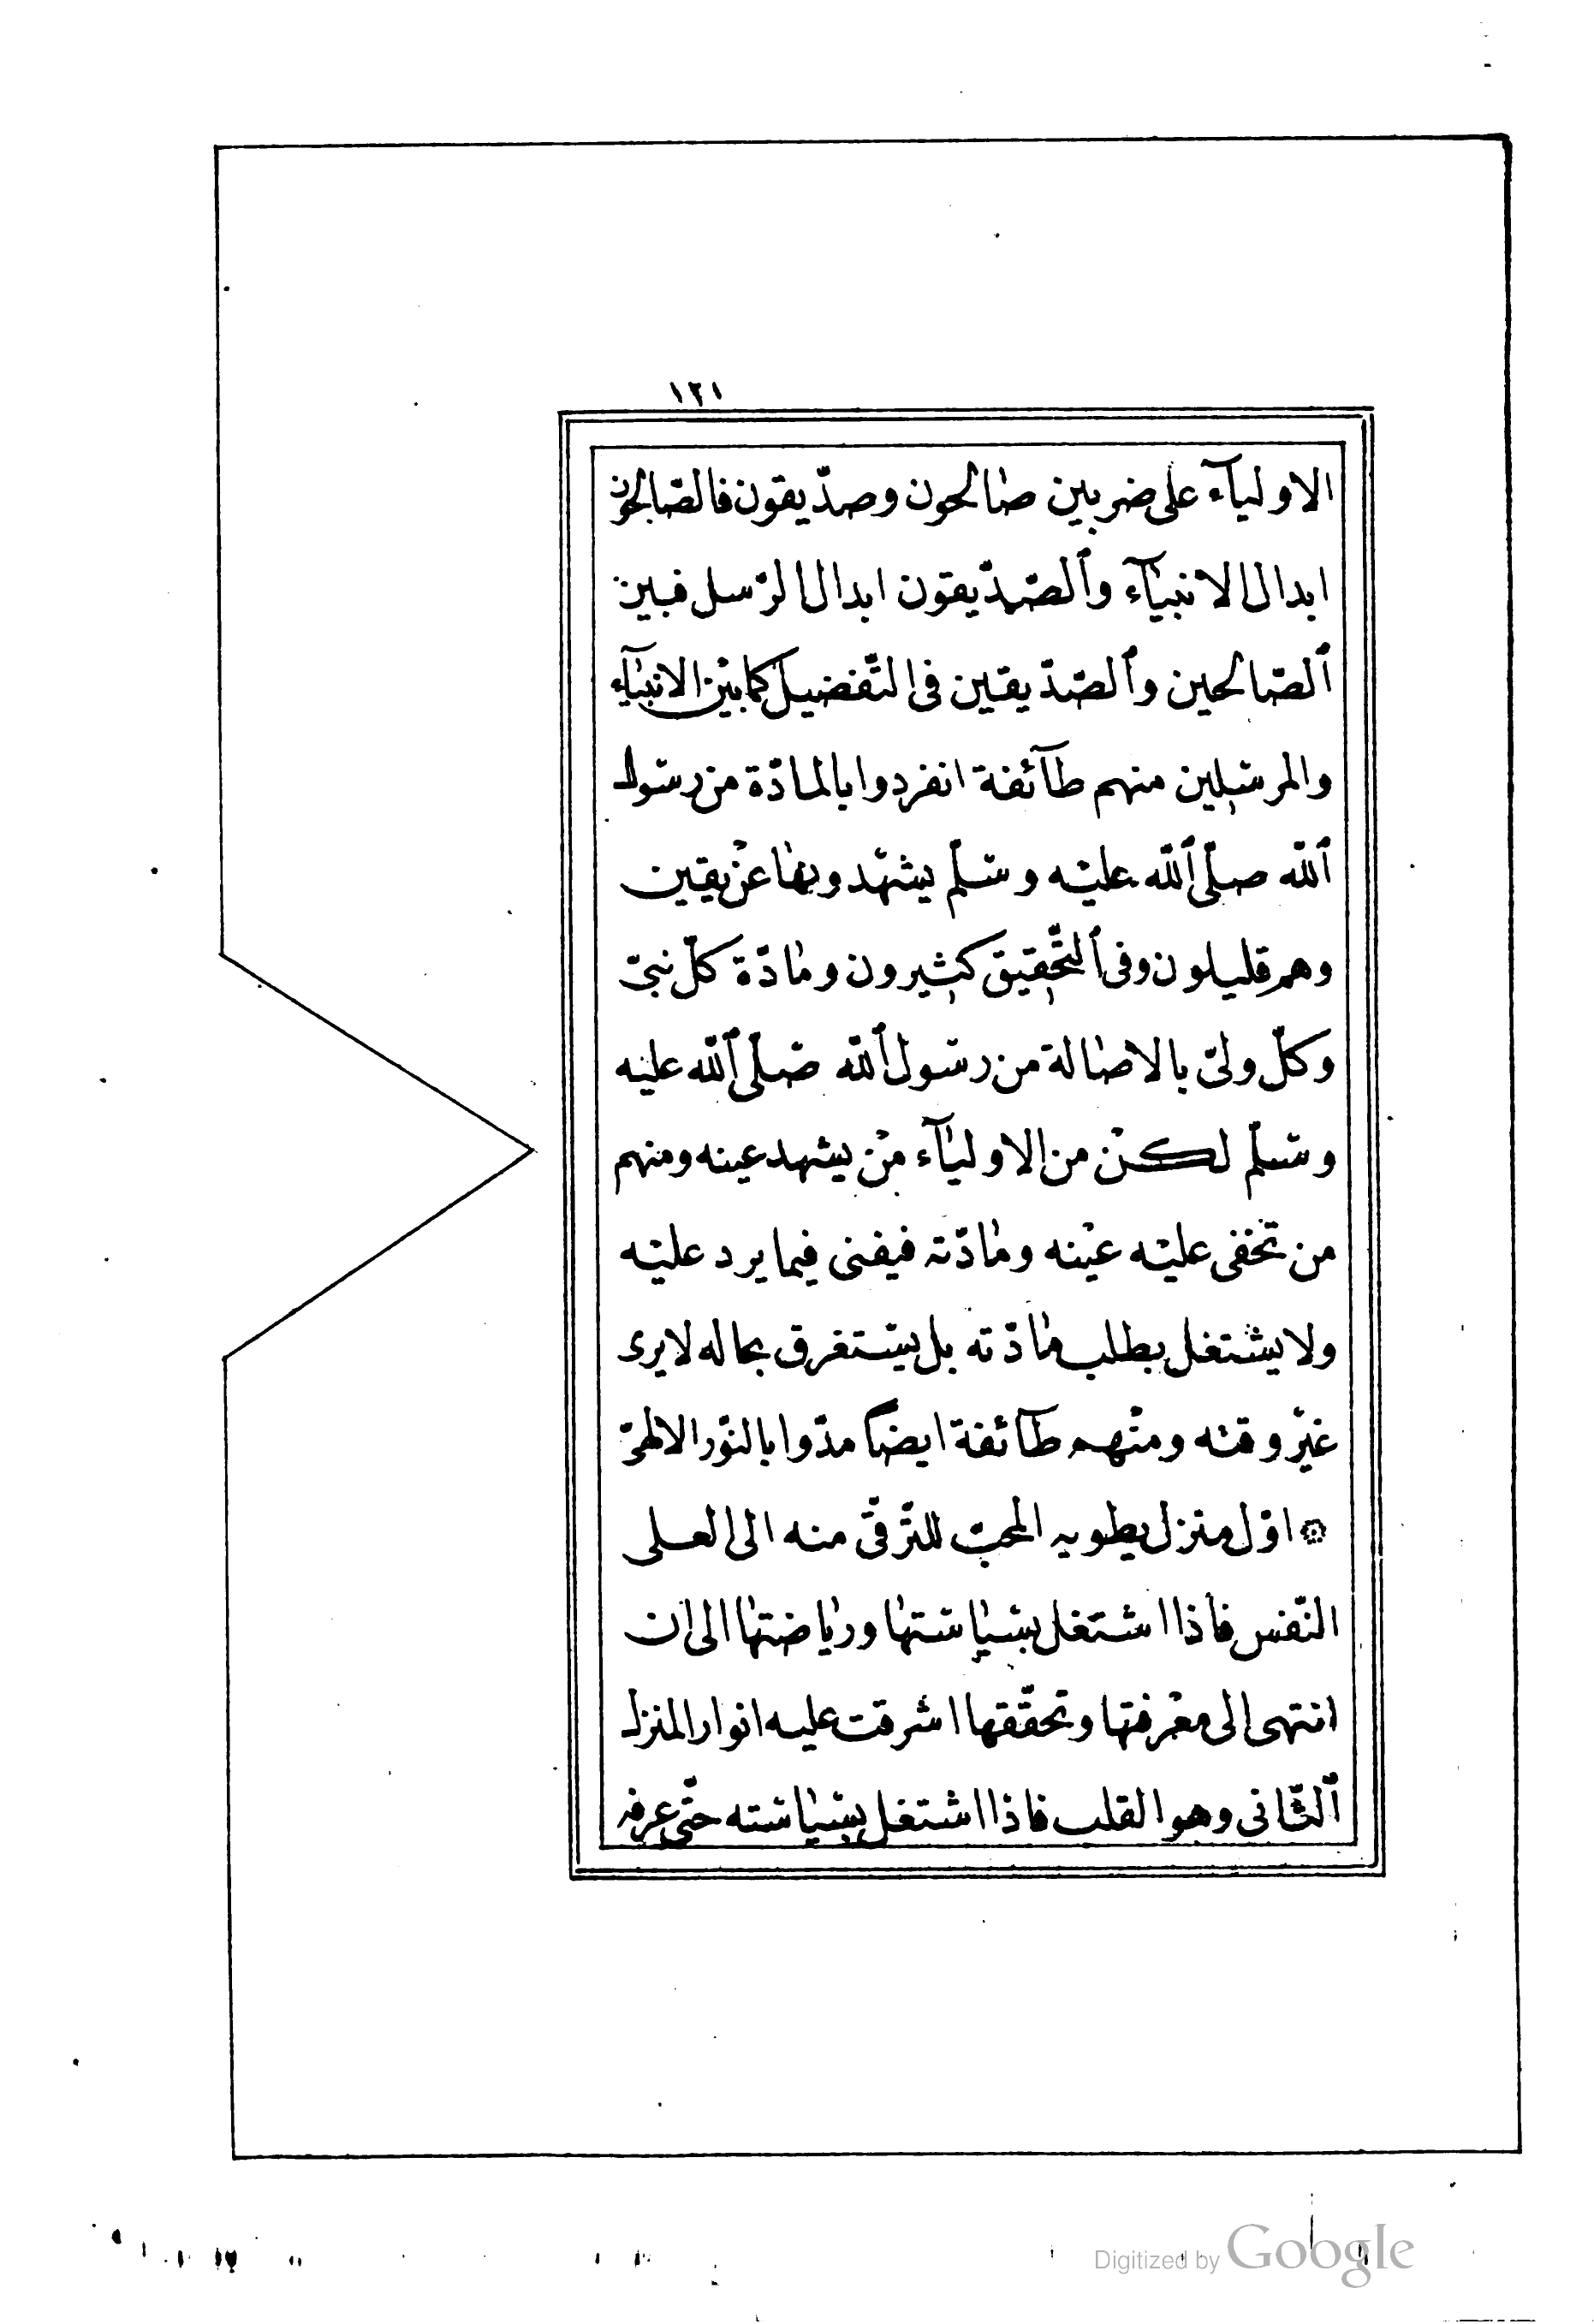 ١٢١
الاوليآء على ضربين صالحون وصدّيقون فالصّالحون
ابدال الانبيآء وٱلصّدّيقون ابدال الرّسل فبين
ٱلصّالحين وٱلصّدّيقين فى التّفضيل كما بين الانبيآء
والمرسلين منهم طآئفة انفردوا بالمادّة من رسول
ٱللّه صلّى ٱللّه عليه وسلّم يشهدونها عن يقين
وهم قليلون وفى ٱلتّحقيق كثيرون ومادّة كلّ نبىّ
وكلّ ولىّ بالاصالة من رسول ٱللّه صلّى ٱللّه عليه
وسلّم لكن من الاوليآء من يشهد عينه ومنهم
من تخفى عليه عينه ومادّته فيفنى فيما يرد عليه
ولا يشتغل بطلب مادّته بل يستغرق بحاله لا يرى
غير وقته ومنهم طآئفة ايضا مدّوا بالنّور الالهىّ
۞ اوّل منزل يطويه المحبّ للترّقّى منه الى العلى
النّفس فاذا اشتغل بسياستها ورياضتها الى ان
انتهى الى معرفتها وتحقّقها اشرقت عليه انوار المنزل
ٱلثّانى وهو القلب فاذا اشتغل بسياسته حتّى عرفه
Digitized by Google